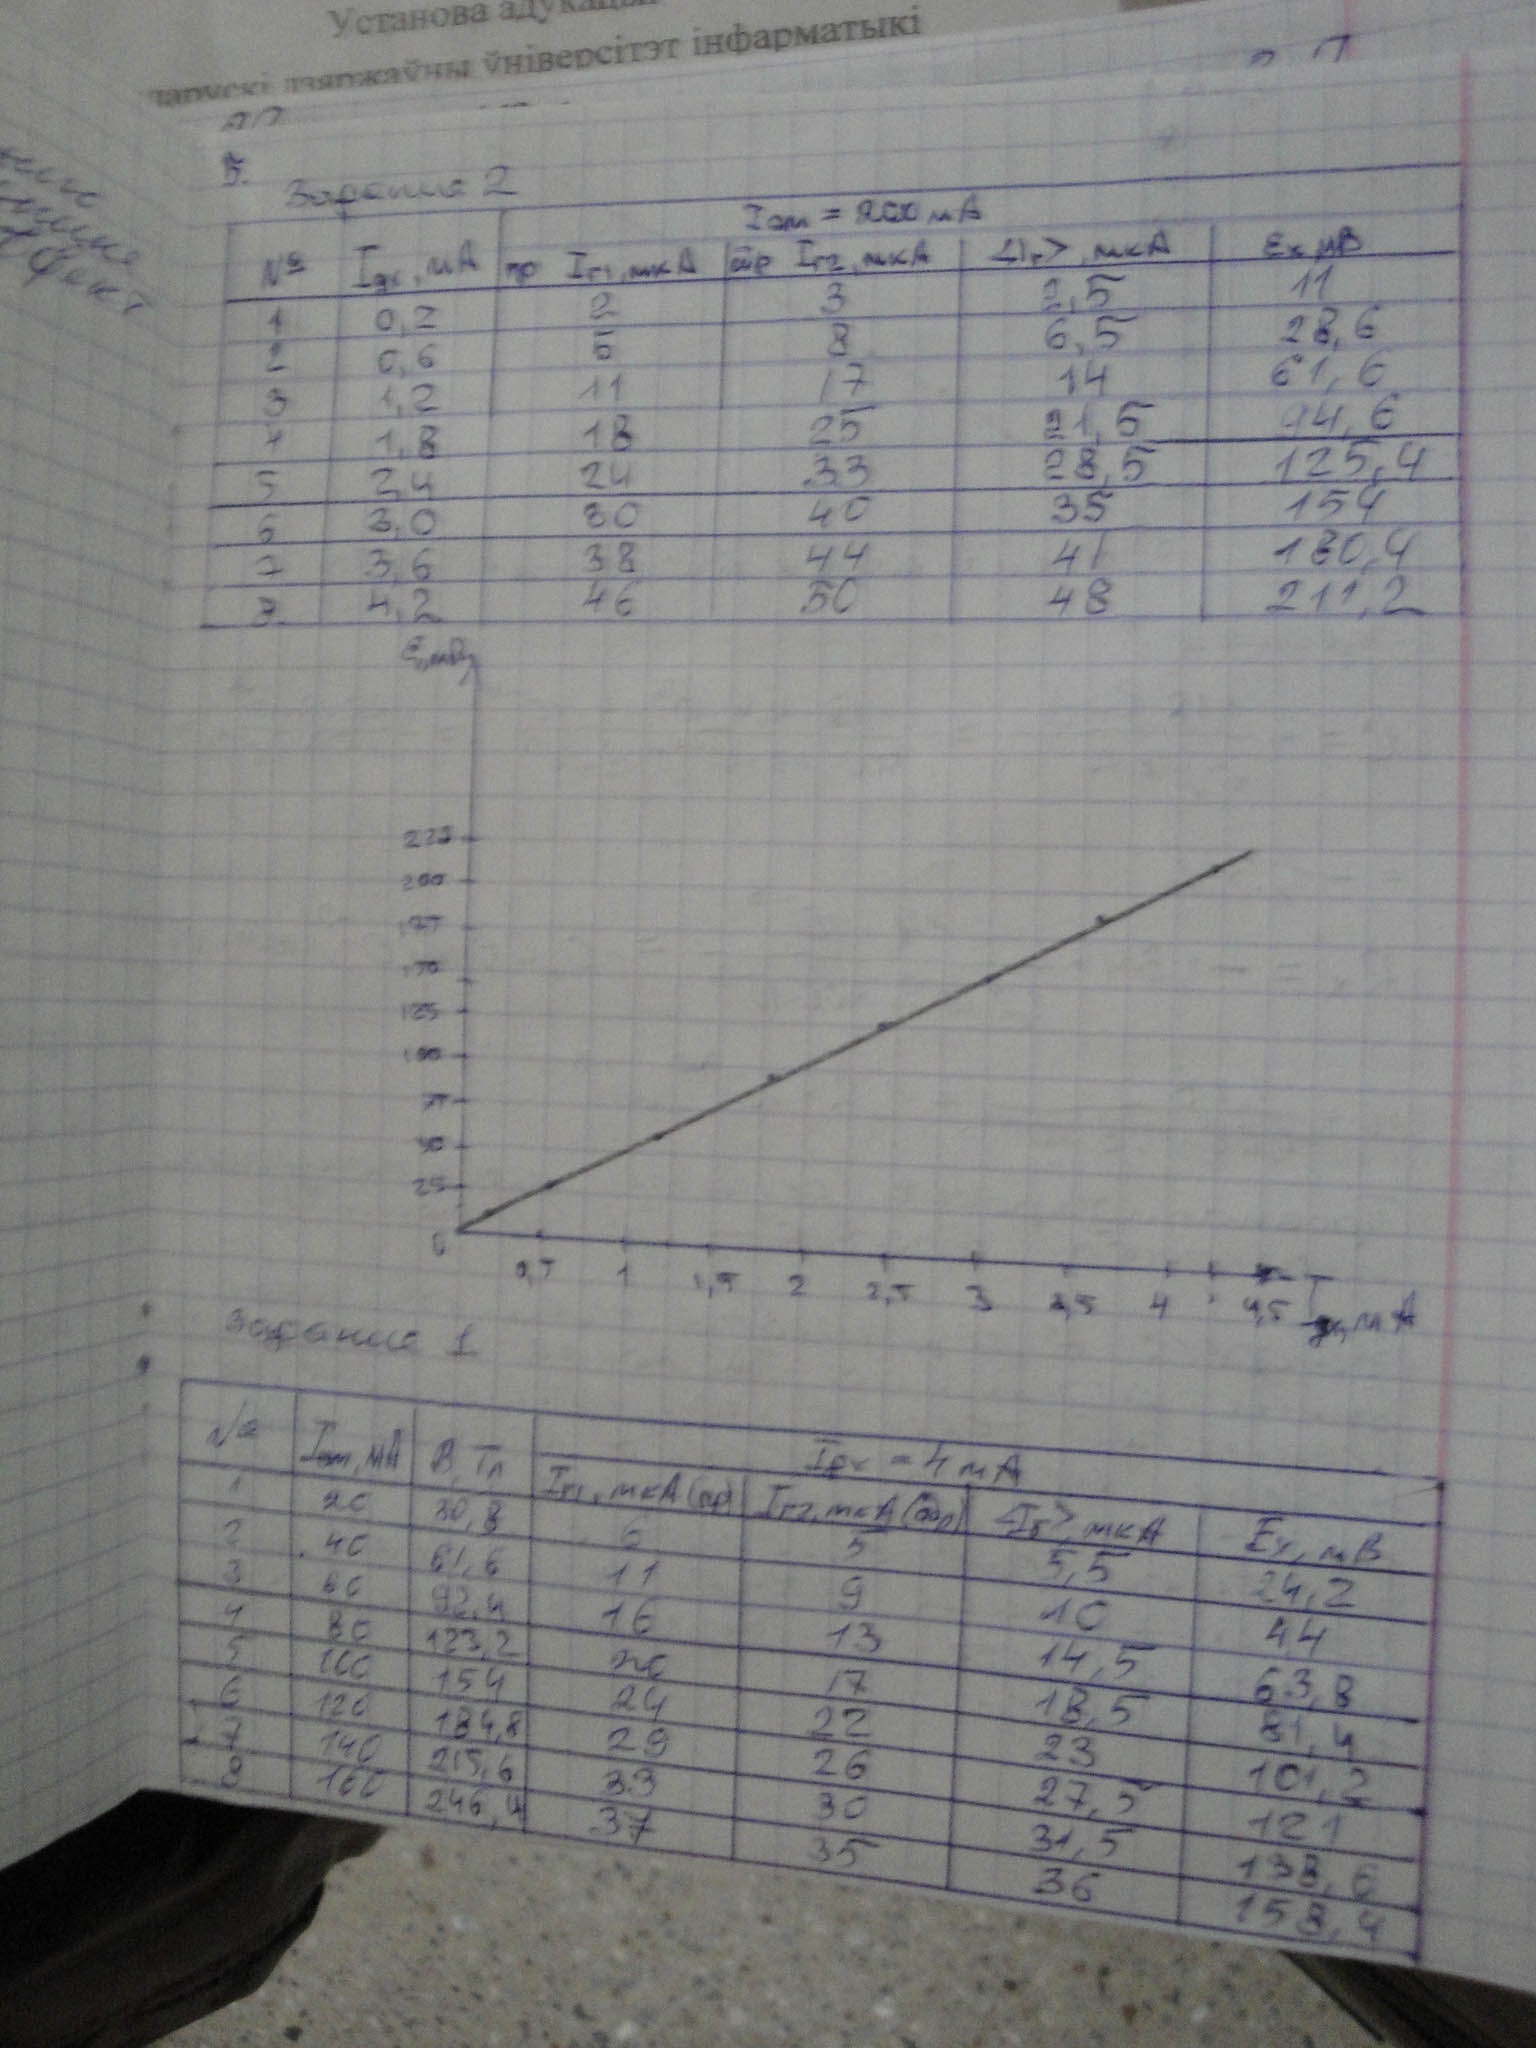 Установа адукацыі
дзяржаўны ўніверсітэт інфарматыкі
Задание 2
Iэм = 200 мА
№ Iдх, мА пр Iг1, мкА обр Iг2, мкА <Iг>, мкА Ex мВ
1 0,2 2 3 2,5 11
2 0,6 5 8 6,5 28,6
3 1,2 11 17 14 61,6
4 1,8 18 25 21,5 94,6
5 2,4 24 33 28,5 125,4
6 3,0 30 40 35 154
7 3,6 38 44 41 180,4
4,2 46 50 48 211,2
225
200
125
100
75
50
25
0
0,5 1 1,5 2 2,5 3 3,5 4 4,5 Iдх, мА
Задание 1
Iдх = 4 мА
№ Iэм, мА B, Тл Iг1, мкА (пр) Iг2, мкА (обр) <Iг>, мкА Ex, мВ
1 20 30,8 6 5 5,5 24,2
2 40 61,6 11 9 10 44
3 60 92,4 16 13 14,5 63,8
4 80 123,2 20 17 18,5 81,4
5 100 154 24 22 23 101,2
6 120 184,8 29 26 27,5 121
7 140 215,6 33 30 31,5 138,6
8 160 246,4 37 35 36 158,4